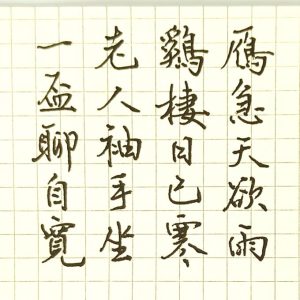 鴈急天欲雨
鷄棲日已寒
老人袖手坐
一盃聊自寬